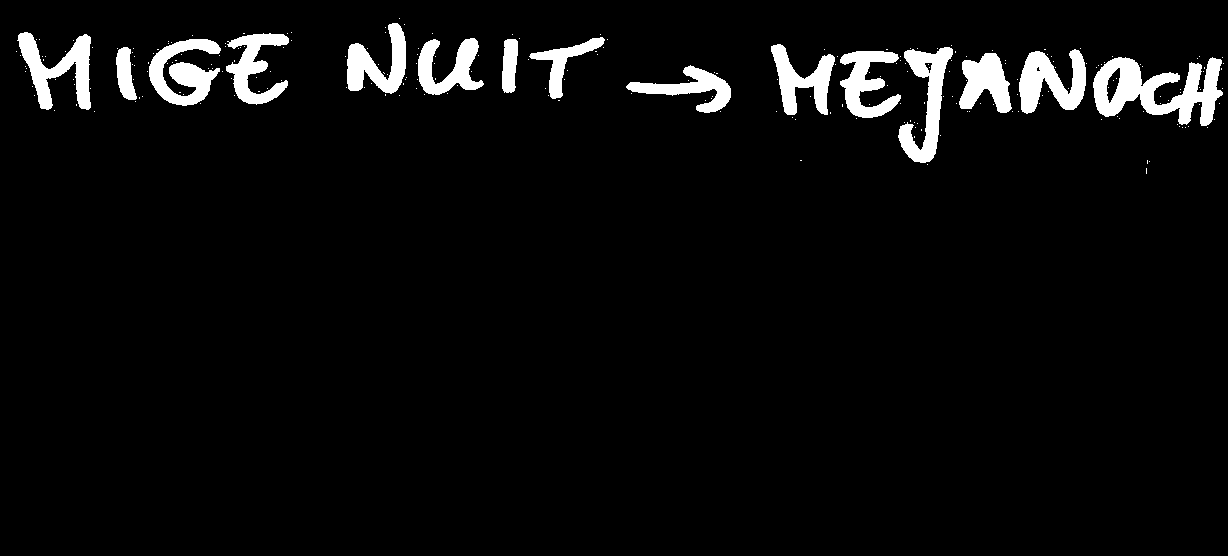 MIGE NUIT → MEJANOCH